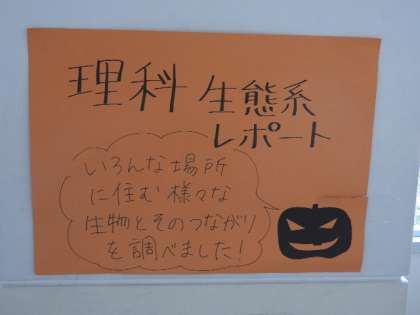 理科 生態系
レポート
いろんな場所
に住む様々な
生物とそのつながり
を調べました!